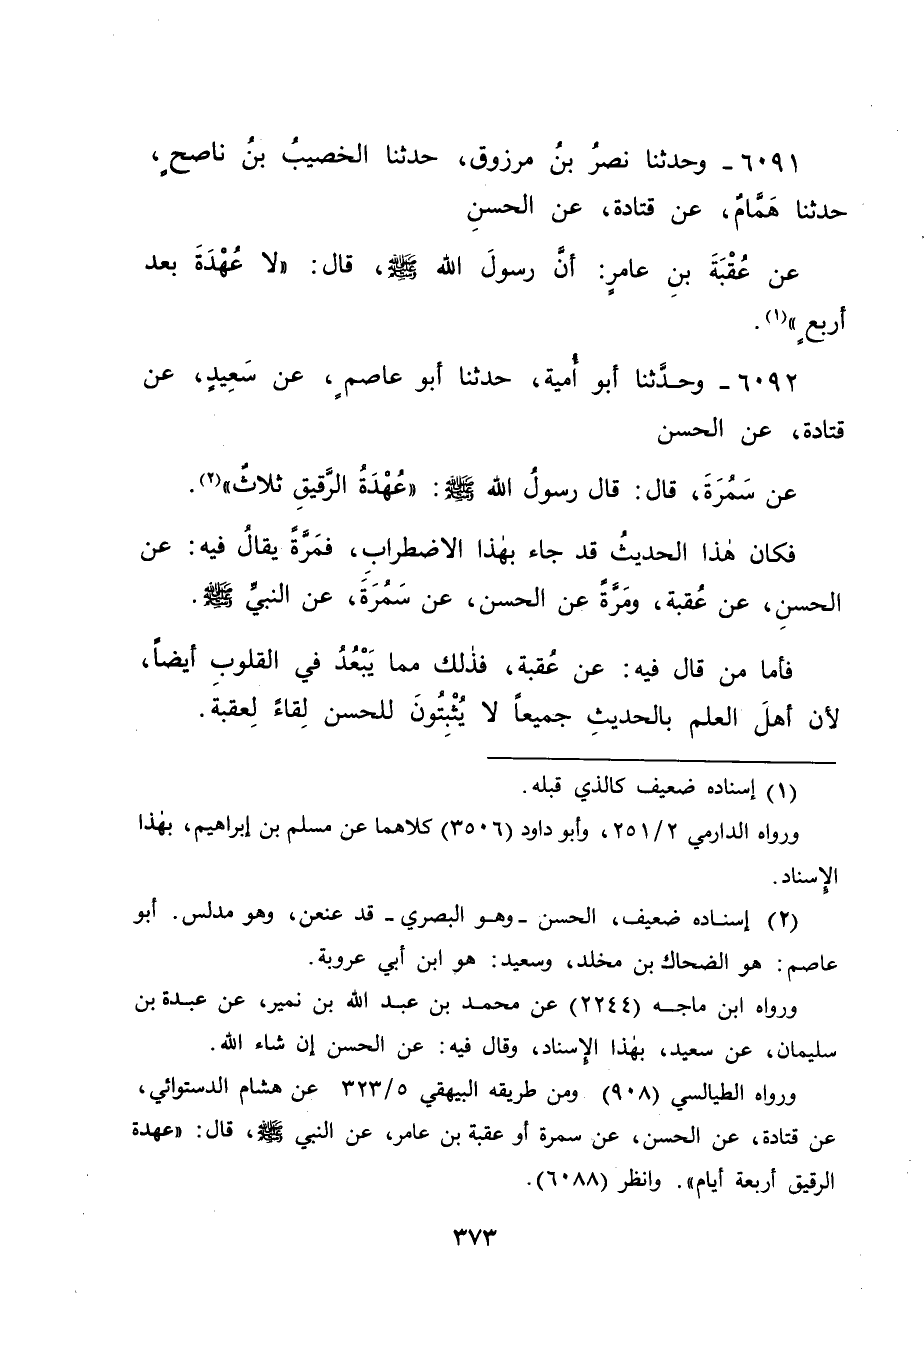 ٦٠٩١ـ وحدثنا نصرُ بنُ مرزوق، حدثنا الخصيبُ بنُ ناصحٍ،
حدثنا هَمَّامٌ، عن قتادة، عن الحسنِ
عن عُقْبَةَ بنِ عامرٍ: أنَّ رسولَ الله ﷺ، قال: «لا عُهْدَةَ بعد
أربعٍ»(١).
٦٠٩٢ـ وحدَّثنا أبو أُمية، حدثنا أبو عاصمٍ، عن سَعِيدٍ، عن
قتادة، عن الحسن
عن سَمُرَةَ، قال: قال رسولُ الله ﷺ: «عُهْدَةُ الرَّقيقِ ثلاثٌ»(٢).
فكان هٰذا الحديثُ قد جاء بهٰذا الاضطرابِ، فمَرَّةً يقالُ فيه: عن
الحسنِ، عن عُقبة، ومَرَّةً عن الحسن، عن سَمُرَةَ، عن النبيِّ ﷺ.
فأما من قال فيه: عن عُقبة، فذٰلك مما يَبْعُدُ في القلوبِ أيضاً،
لأن أهلَ العلم بالحديثِ جميعاً لا يُثْبِتُونَ للحسن لِقاءً لِعقبة.
(١) إسناده ضعيف كالذي قبله.
ورواه الدارمي ٢٥١/٢، وأبو داود (٣٥٠٦) كلاهما عن مسلم بن إبراهيم، بهٰذا
الإسناد.
(٢) إسناده ضعيف، الحسن ـ وهو البصري ـ قد عنعن، وهو مدلس. أبو
عاصم: هو الضحاك بن مخلد، وسعيد: هو ابن أبي عروبة.
ورواه ابن ماجه (٢٢٤٤) عن محمد بن عبد الله بن نمير، عن عبدة بن
سليمان، عن سعيد، بهٰذا الإسناد، وقال فيه: عن الحسن إن شاء الله.
ورواه الطيالسي (٩٠٨) ومن طريقه البيهقي ٣٢٣/٥ عن هشام الدستوائي،
عن قتادة، عن الحسن، عن سمرة أو عقبة بن عامر، عن النبي ﷺ، قال: «عهدة
الرقيق أربعة أيام». وانظر (٦٠٨٨).
٣٧٣